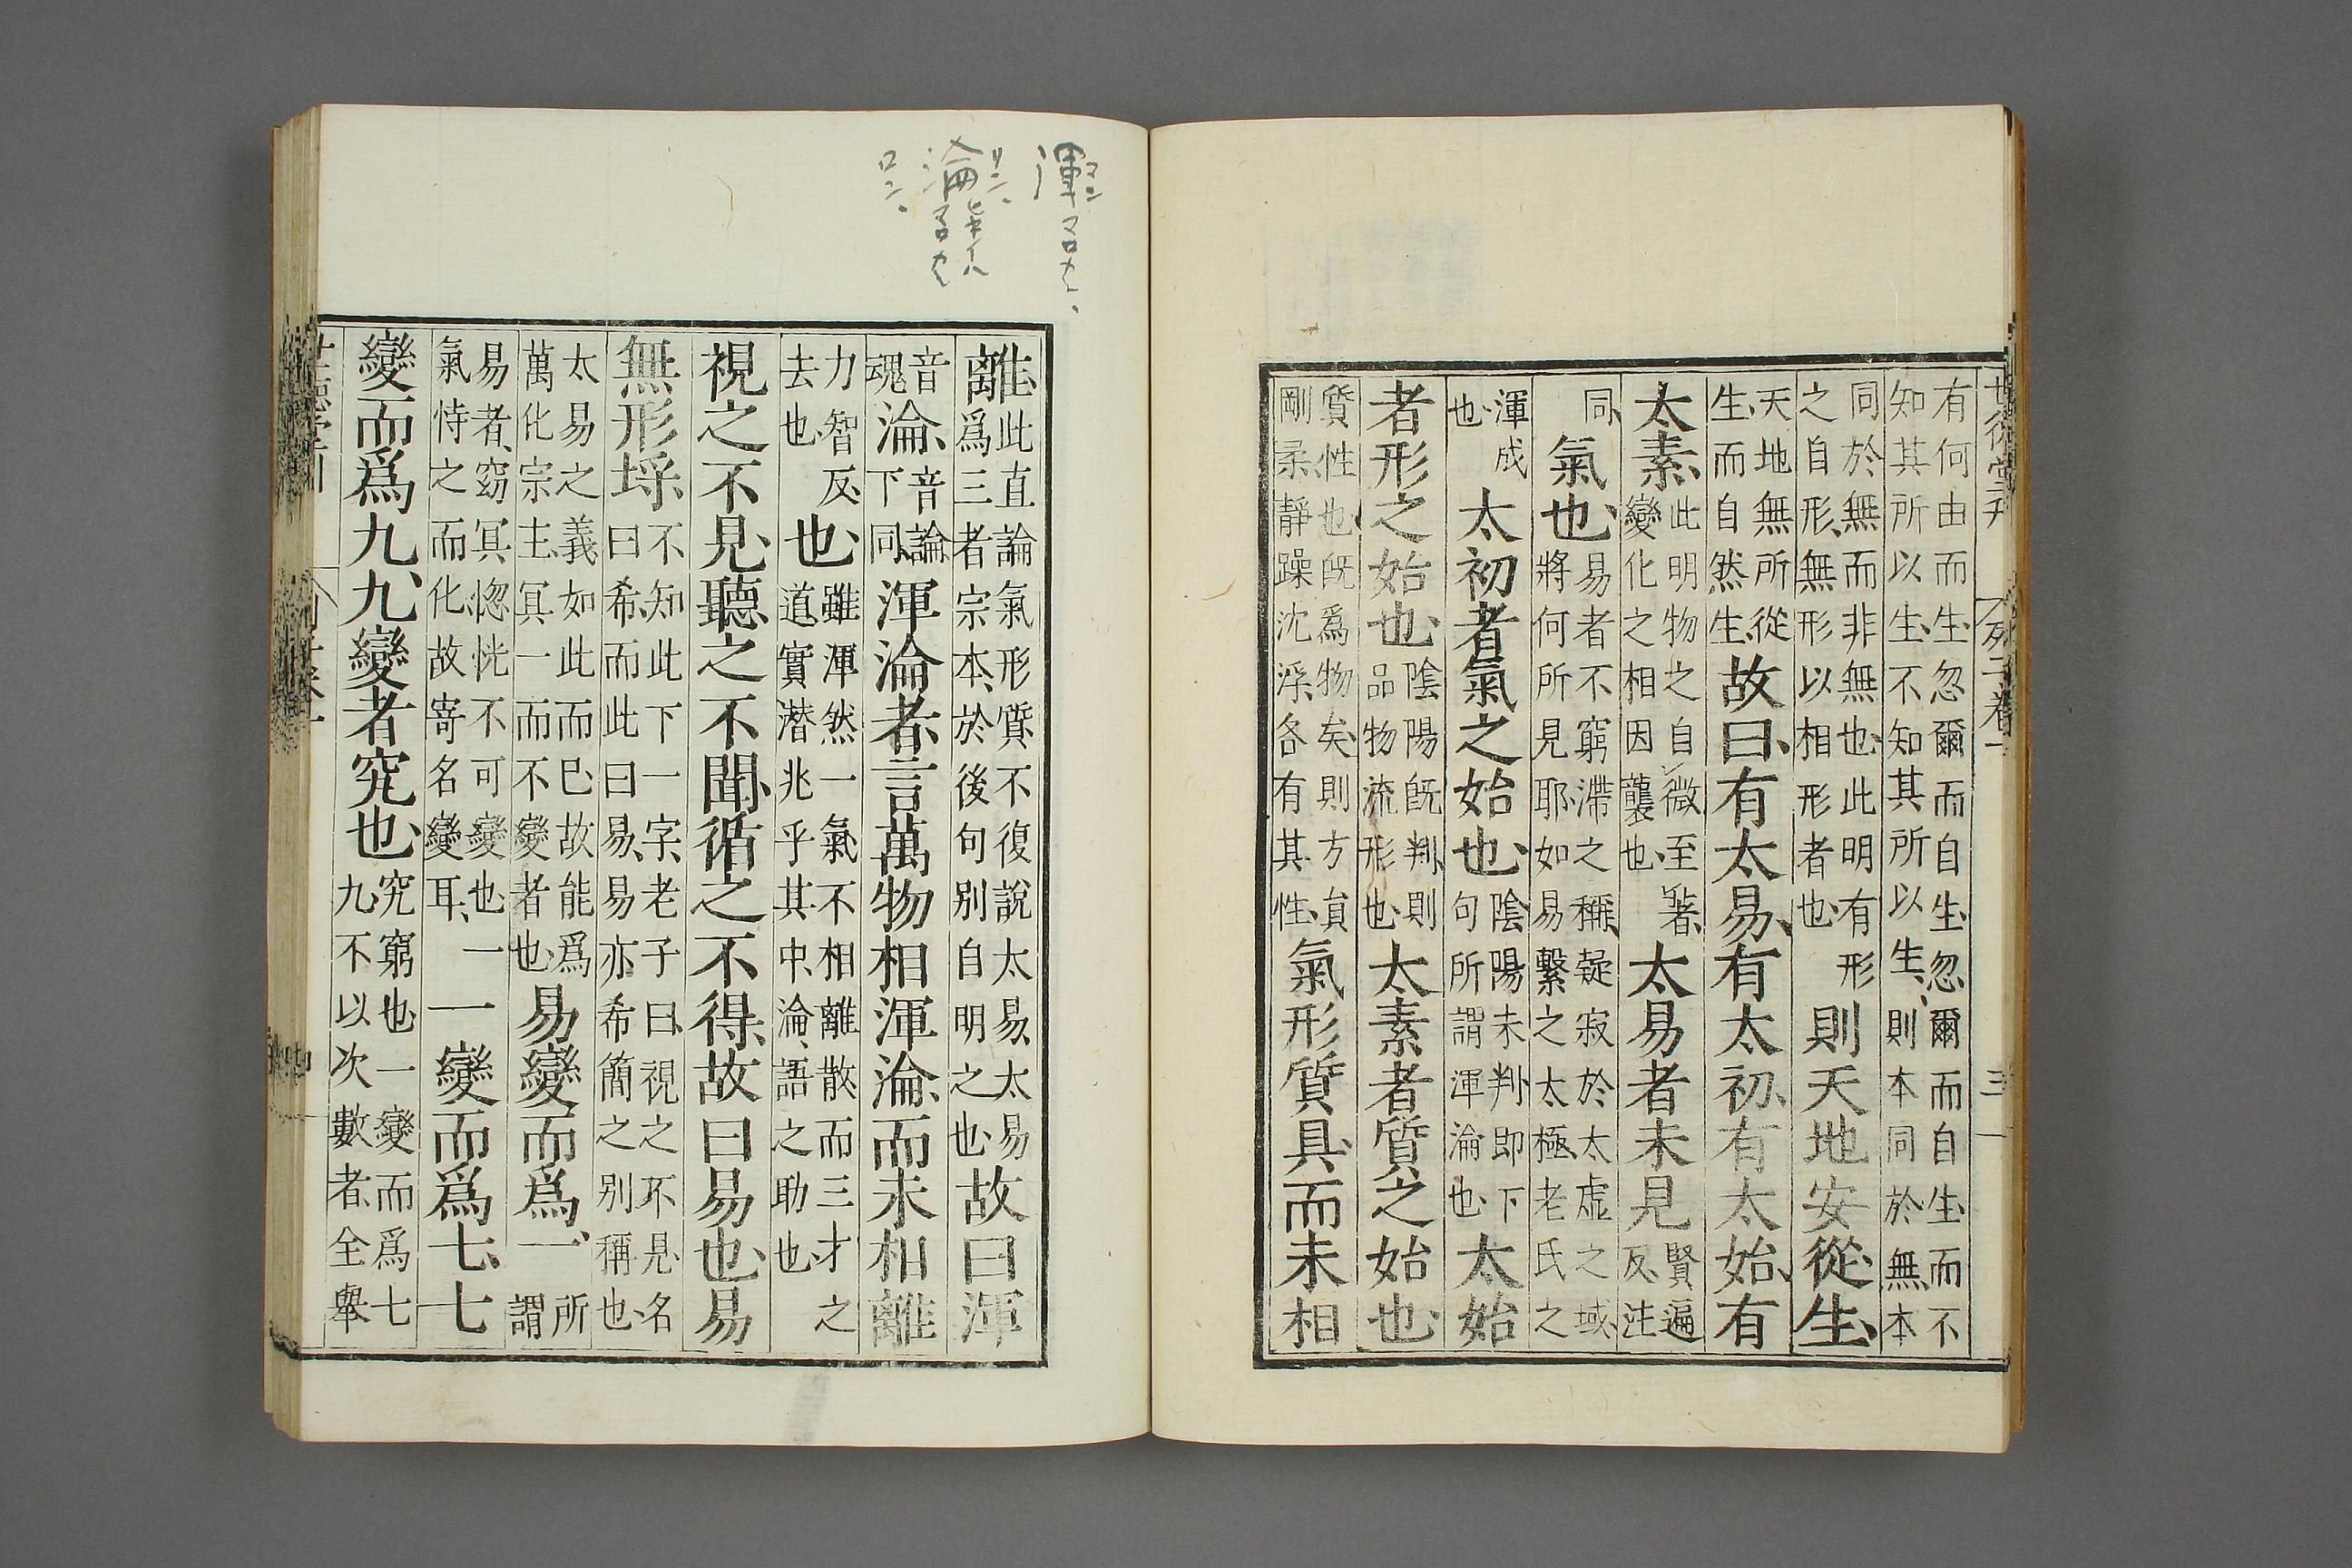 世德堂刊 列子卷一 三
有何由而生忽爾而自生忽爾而自生而不
知其所以生、不知其所以生、則本同於無本
同於無而非無也、此明有形
之自形、無形以相形者也、
則天地安從生、
天地無所從
生、而自然生、
故曰、有太易、有太初、有太始、有
太素、
此明物之自微至著、
變化之相因襲也、
太易者未見
賢遍
反、注
同、
氣也、
易者不窮滯之稱、凝寂於太虛之域、
將何所見耶、如易繫之太極、老氏之
渾成
也、
太初者氣之始也、
陰陽未判、即下
句所謂渾淪也、
太始
者形之始也、
陰陽旣判、則
品物流形也、
太素者質之始也、
質性也、旣爲物矣、則方員
剛柔、靜躁沈浮、各有其性、
氣形質具、而未相
渾 マロカ
淪
離、
此直論氣形質、不復說太易、太易
爲三者宗本、於後句別自明之也、
故曰渾
音
魂
淪、
音論、
下同、
渾淪者、言萬物相渾淪、而未相離
力智反、
去也、
也、
雖渾然一氣不相離散、而三才之
道、實潛兆乎其中、淪、語之助也、
視之不見、聽之不聞、循之不得、故曰易也、易
無形埒、
不知此下一字、老子曰、視之不見、名
曰希、而此曰易、易亦希簡之別稱也、
太易之義如此而已、故能爲
萬化宗主、冥一而不變者也、
易變而爲一、
所
謂
易者、窈冥惚恍、不可變也、一
氣恃之而化、故寄名變耳、
一變而爲七、七
變而爲九、九變者究也、
究窮也、一變而爲七
九不以次數者、全舉
世德堂刊